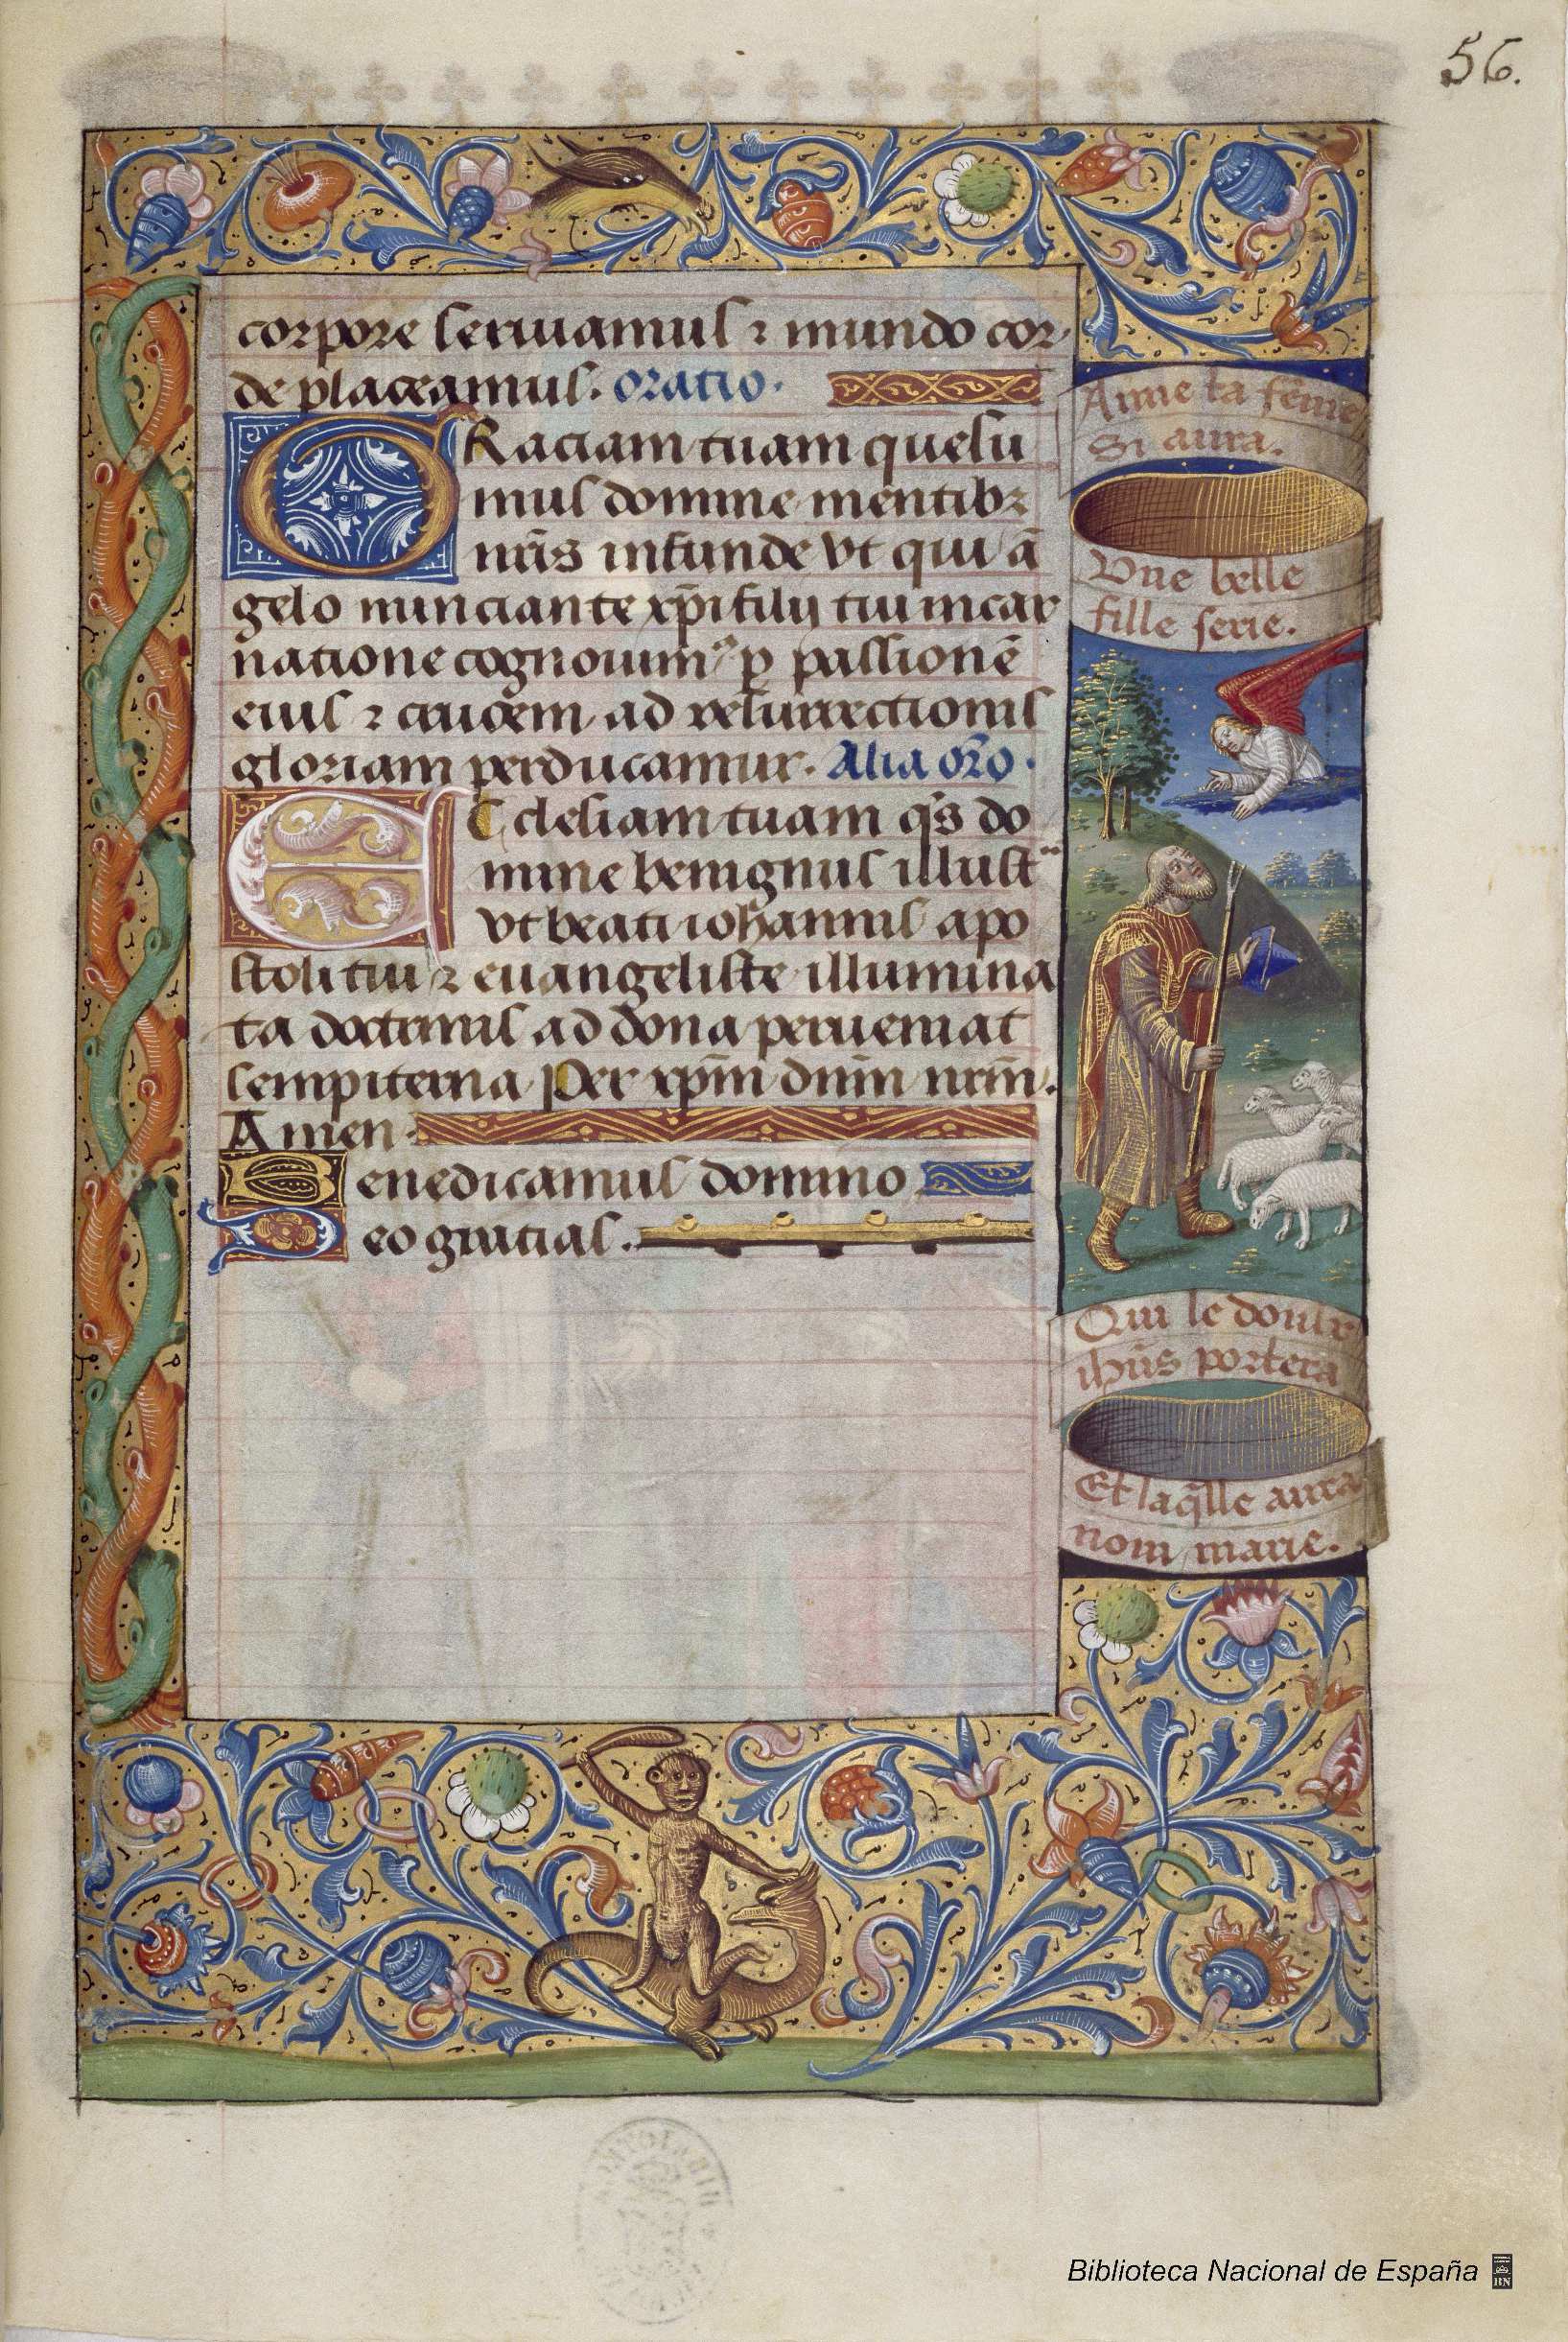 56.
corpore seruiamus ⁊ mundo cor-
de placeamus. oratio.
GRaciam tuam quesu
mus domine mentibꝫ
nr̄is infunde vt qui ā
gelo nunciante xp̄i filij tui incar
natione cognouimꝰ ꝑ passionē
eius ⁊ crucem ad resurrectionis
gloriam perducamur. Alia or̄o.
ECclesiam tuam q̄s do
mine benignus illustᵃ
vt beati iohannis apo
stoli tui ⁊ euangeliste illumina
ta doctrinis ad dona perueniat
sempiterna Per xp̄m dnm̄ nrm̄.
Amen.
Benedicamus domino
Deo gracias.
Anne ta fēme
Si aura.
Vne belle
fille serie.
Qui le doulx
ihūs portera
Et laq̄lle aura
nom marie.
Biblioteca Nacional de España
BN